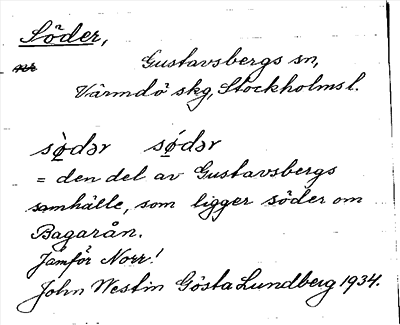 Söder,
Gustavsbergs sn,
Värmdö skg, Stockholms l.
sø̀dər sǿdər
= den del av Gustavsbergs
samhälle, som ligger söder om
Bagarån.
Jämför Norr!
John Westin Gösta Lundberg 1934.